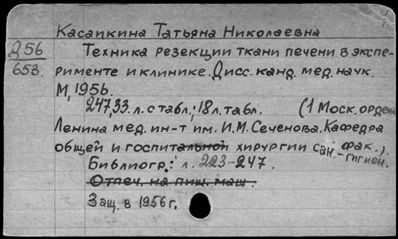 Касаикина Татьяна Николаевна
Д56
653.
Техника резекции ткани печени в экспе-
рименте и клинике. Дисс. канд. мед. наук.
М., 1956.
247,33 л. с табл.; 18 л. табл. (1 Моск. ордена
Ленина мед. ин-т им. И.М. Сеченова. Кафедра
общей и госпитальной хирургии сан.-гигиен. фак.).
Библиогр.: л. 223-247.
Отпеч. на пиш. маш.
Защ. в 1956 г.